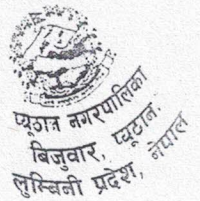 प्यूठान नगरपालिका
बिजुवार, प्यूठान,
लुम्बिनी प्रदेश, नेपाल